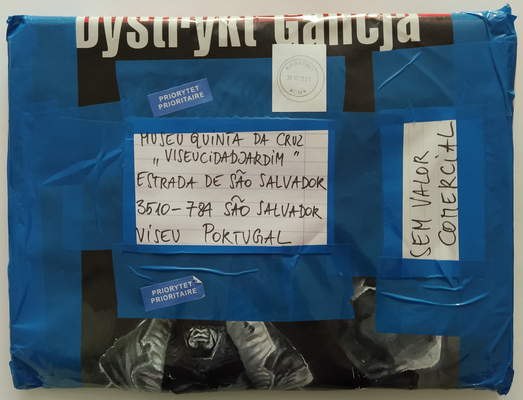 Dystrykt Galicja
PRIORYTET
PRIORITAIRE
MUSEU QUINTA DA CRUZ
„VISEUCIDADJARDIM"
ESTRADA DE SÃO SALVADOR
3510-784 SÃO SALVADOR
VISEU PORTUGAL
SEM VALOR
COMERCIAL
PRIORYTET
PRIORITAIRE